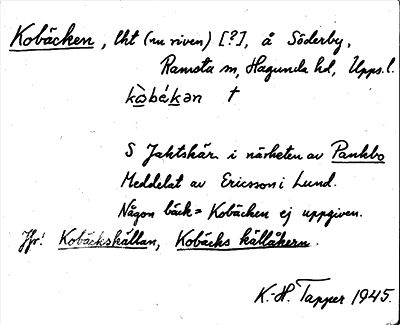 Kobäcken, lht (nu riven) [?], å Söderby,
Ramsta sn, Hagunda hd, Upps. l.
kò̱bákən †
S Jaktskär. i närheten av Pankbo
Meddelat av Ericsson i Lund.
Någon bäck = Kobäcken ej uppgiven.
Jfr! Kobäckskällan, Kobäcks källåkern.
K.-H. Tapper 1945.